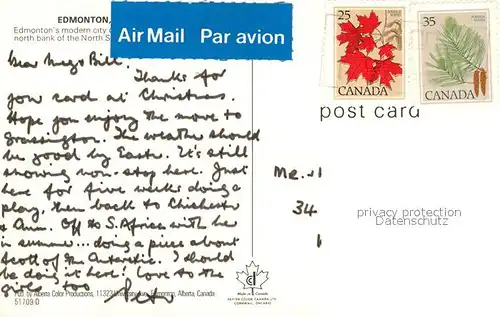 EDMONTON,
Edmonton's modern city
north bank of the North S
Air Mail Par avion
25
CANADA
35
CANADA
post card
Dear Meg & Bill.
Thanks for
your card at Christmas.
Hope you enjoy the move to
Grassington. The weather should
be good by Easter. It's still
snowing non-stop here. Just
here for five weeks doing a
play, then back to Chichester
& Ann. Off to S. Africa with her
in summer... doing a piece about
Scott of the Antarctic. I should
be doing it here! Love to the
girls too
Mr.
34
privacy protection
Datenschutz
Pub. by Alberta Color Productions, 11323 Edmonton, Alberta, Canada
51709-D
CORNWALL, ONTARIO